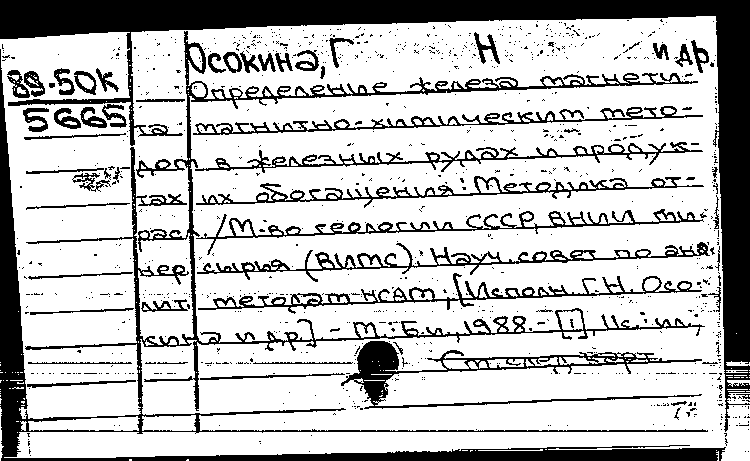 Осокина, Г Н и др.
89-50К
5665
Определение железа магнети-
та магнитно-химическим мето-
дом в железных рудах и продук-
тах их обогащения: Методика от-
расл. / М-во геологии СССР, ВНИИ ми-
нер. сырья (ВИМС). Науч. совет по ана-
лит. методам НСАМ; [Исполн. Г.Н. Осо-
кина и др.] - М.: Б.и., 1988. - [1], 11с.: ил.;
См. след. карт.